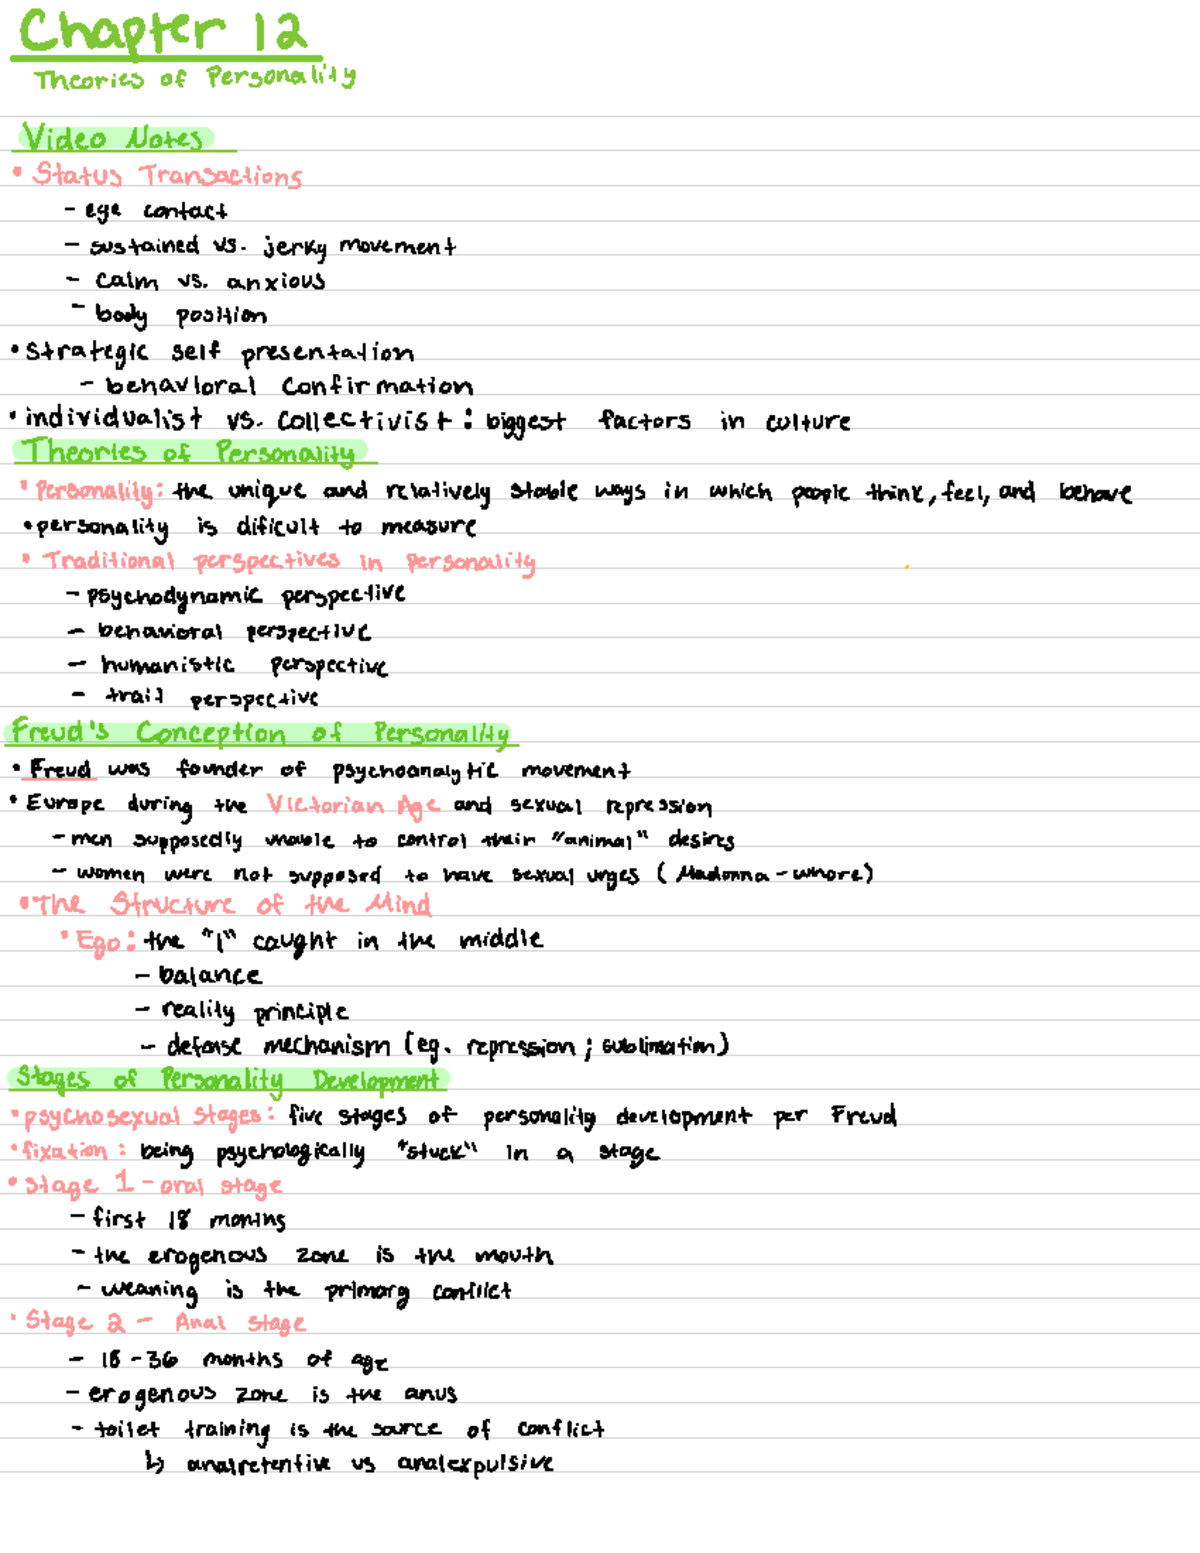 Chapter 12
Theories of Personality
Video Notes
• Status Transactions
- eye contact
- sustained vs. jerky movement
- calm vs. anxious
- body position
• Strategic self presentation
- behavioral confirmation
• individualist vs. collectivist: biggest factors in culture
Theories of Personality
• Personality: the unique and relatively stable ways in which people think, feel, and behave
• personality is dificult to measure
• Traditional perspectives in personality
- psychodynamic perspective
- behavioral perspective
- humanistic perspective
- trait perspective
Freud's Conception of Personality
• Freud was founder of psychoanalytic movement
• Europe during the Victorian Age and sexual repression
- men supposedly unable to control their "animal" desires
- women were not supposed to have sexual urges (Madonna-whore)
• The Structure of the Mind
• Ego: the "I" caught in the middle
- balance
- reality principle
- defense mechanism (eg. repression; sublimation)
Stages of Personality Development
• psychosexual stages: five stages of personality development per Freud
• fixation: being psychologically "stuck" in a stage
• Stage 1 - oral stage
- first 18 months
- the erogenous zone is the mouth
- weaning is the primary conflict
• Stage 2 - Anal stage
- 18-36 months of age
- erogenous zone is the anus
- toilet training is the source of conflict
↳ analretentive vs analexpulsive